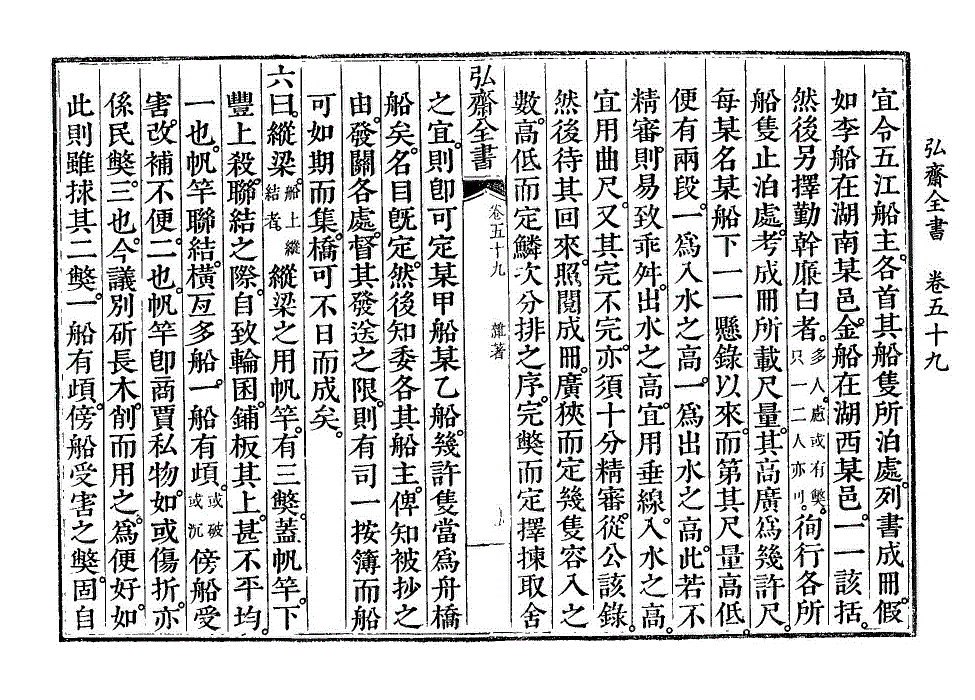 弘齋全書 卷五十九
宜令五江船主。各首其船隻所泊處。列書成冊。假
如李船在湖南某邑。金船在湖西某邑。一一該括。
然後另擇勤幹廉白者。多人處或有弊。只一二人亦可。徇行各所
船隻止泊處。考成冊所載尺量。其高廣爲幾許尺。
每某名某船下一一懸錄以來。而第其尺量高低。
便有兩段。一爲入水之高。一爲出水之高。此若不
精審。則易致乖舛。出水之高。宜用垂線。入水之高。
宜用曲尺。又其完不完。亦須十分精審。從公該錄。
然後待其回來。照閱成冊。廣狹而定幾隻容入之
數。高低而定鱗次分排之序。完弊而定擇揀取舍
弘齋全書
卷五十九 雜著
之宜。則卽可定某甲船某乙船幾許隻當爲舟橋
船矣。名目旣定。然後知委各其船主。俾知被抄之
由。發關各處。督其發送之限。則有司一按簿而船
可如期而集。橋可不日而成矣。
六曰。縱梁。船上縱結者。縱梁之用帆竿。有三弊。蓋帆竿。下
豐上殺。聯結之際。自致輪囷。鋪板其上。甚不平均。
一也。帆竿聯結。橫亙多船。一船有頉。或破或沉 傍船受
害。改補不便。二也。帆竿卽商賈私物。如或傷折。亦
係民弊。三也。今議別斫長木。削而用之。爲便好。如
此則雖捄其二弊。一船有頉。傍船受害之弊。固自